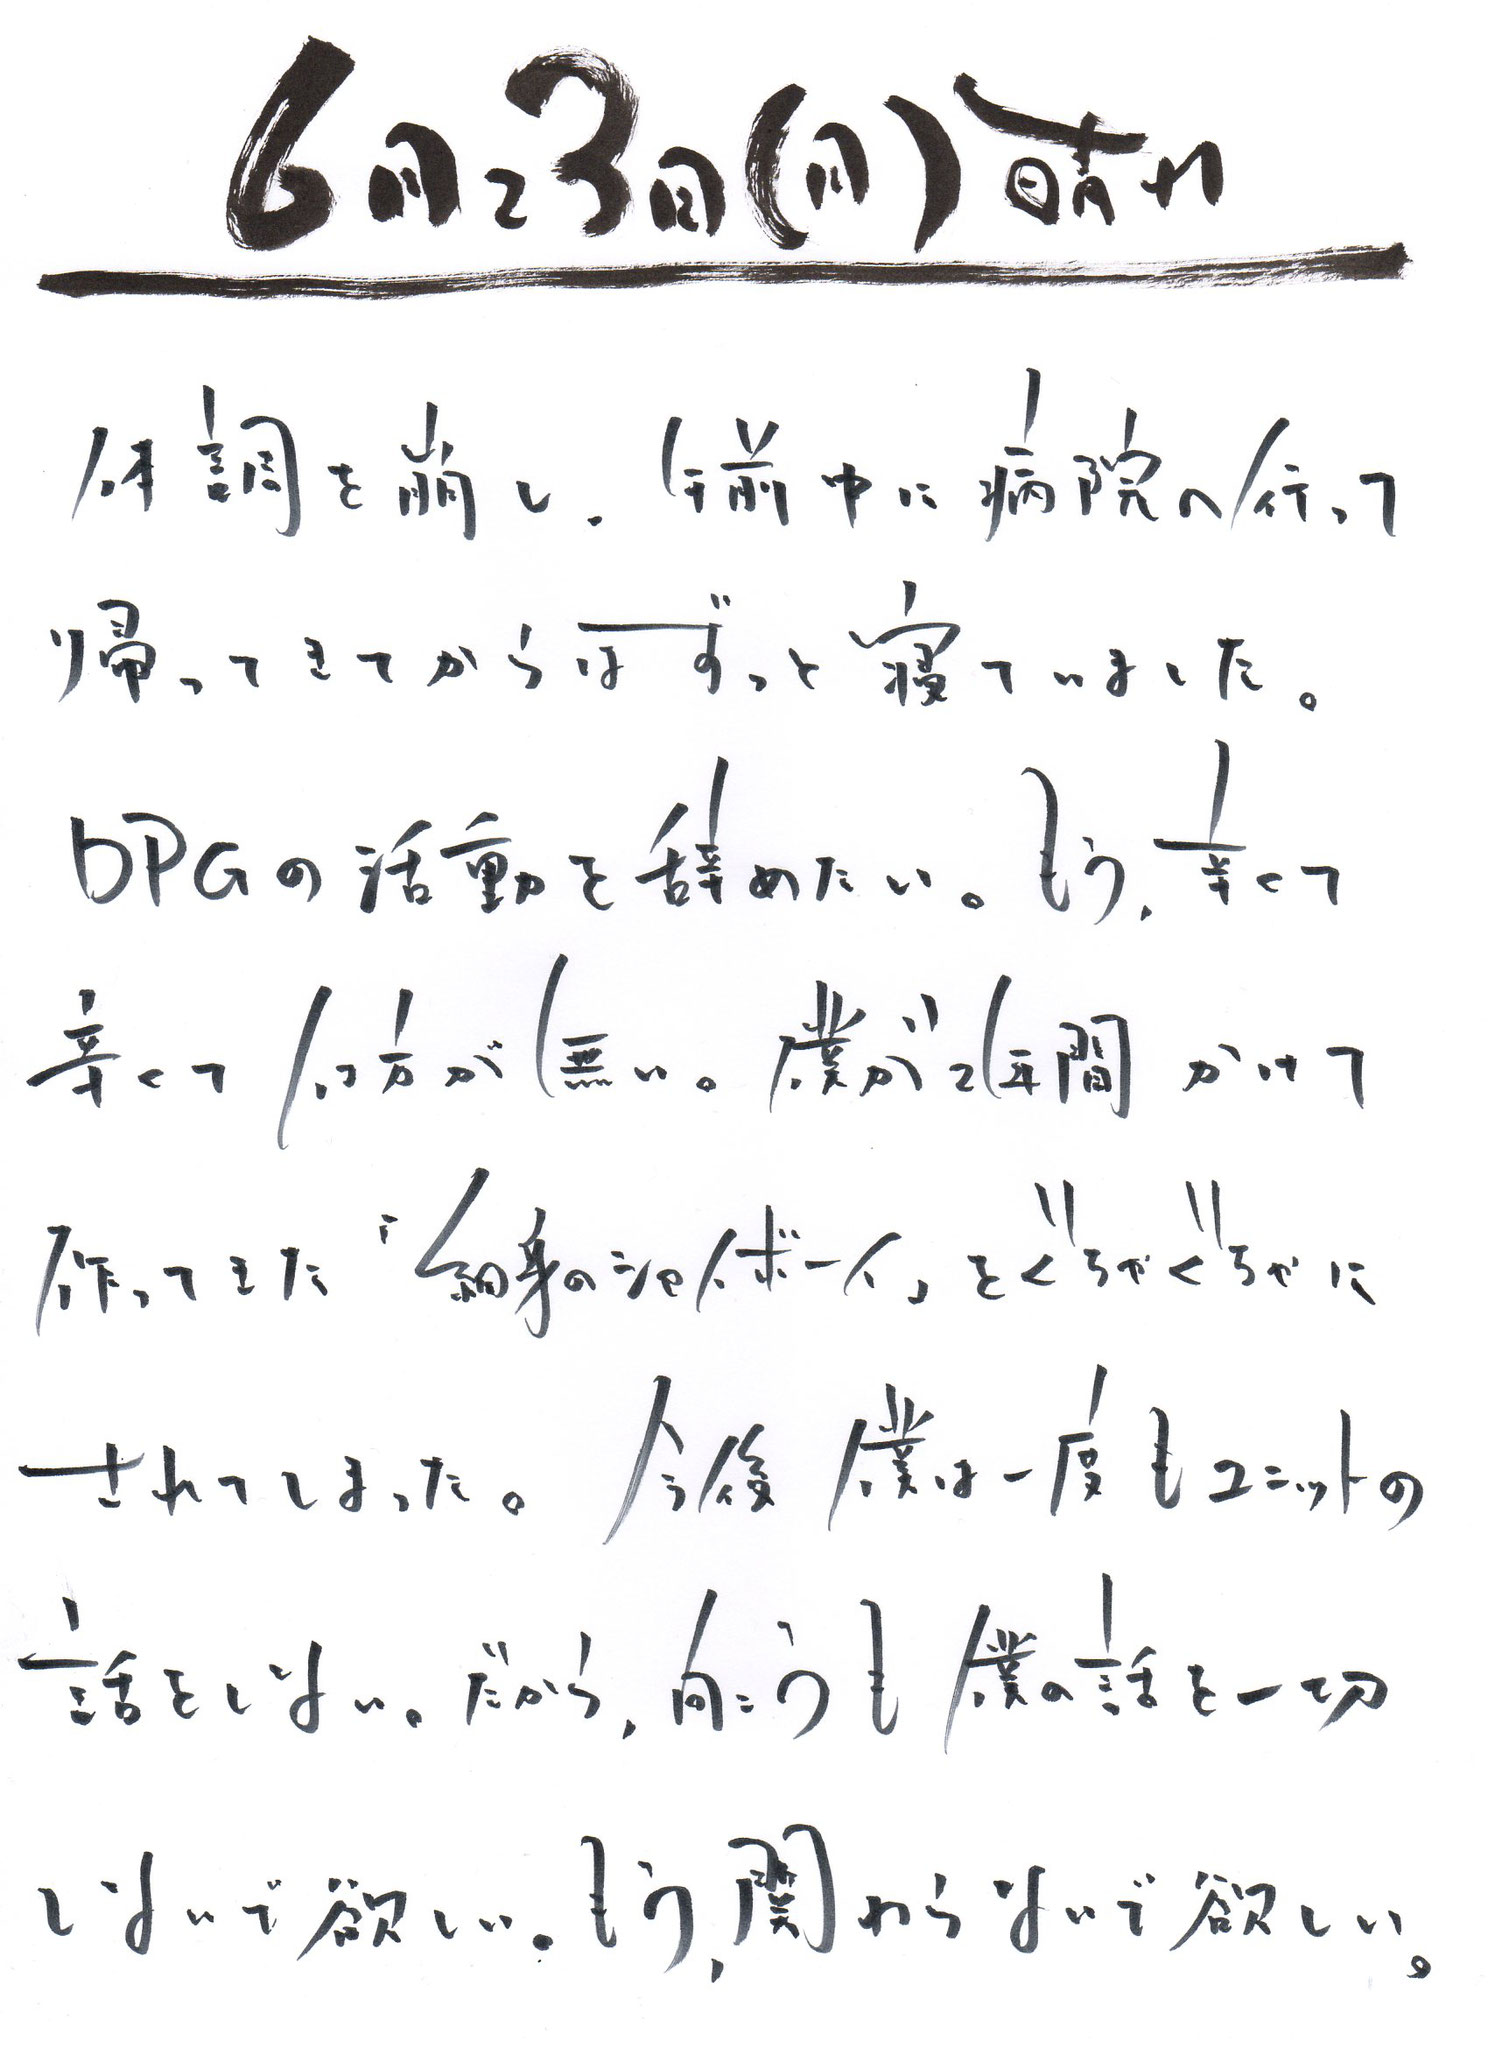 6月23日(月)晴れ
体調を崩し、午前中に病院へ行って
帰ってきてからはずっと寝ていました。
DPGの活動を辞めたい。もう、辛くて
辛くて仕方が無い。僕が2年間かけて
作ってきた「細身のシャイボーイ」をぐちゃぐちゃに
されてしまった。今後僕は一度もユニットの
話をしない。だから、向こうも僕の話を一切
しないで欲しい。もう、関わらないで欲しい。